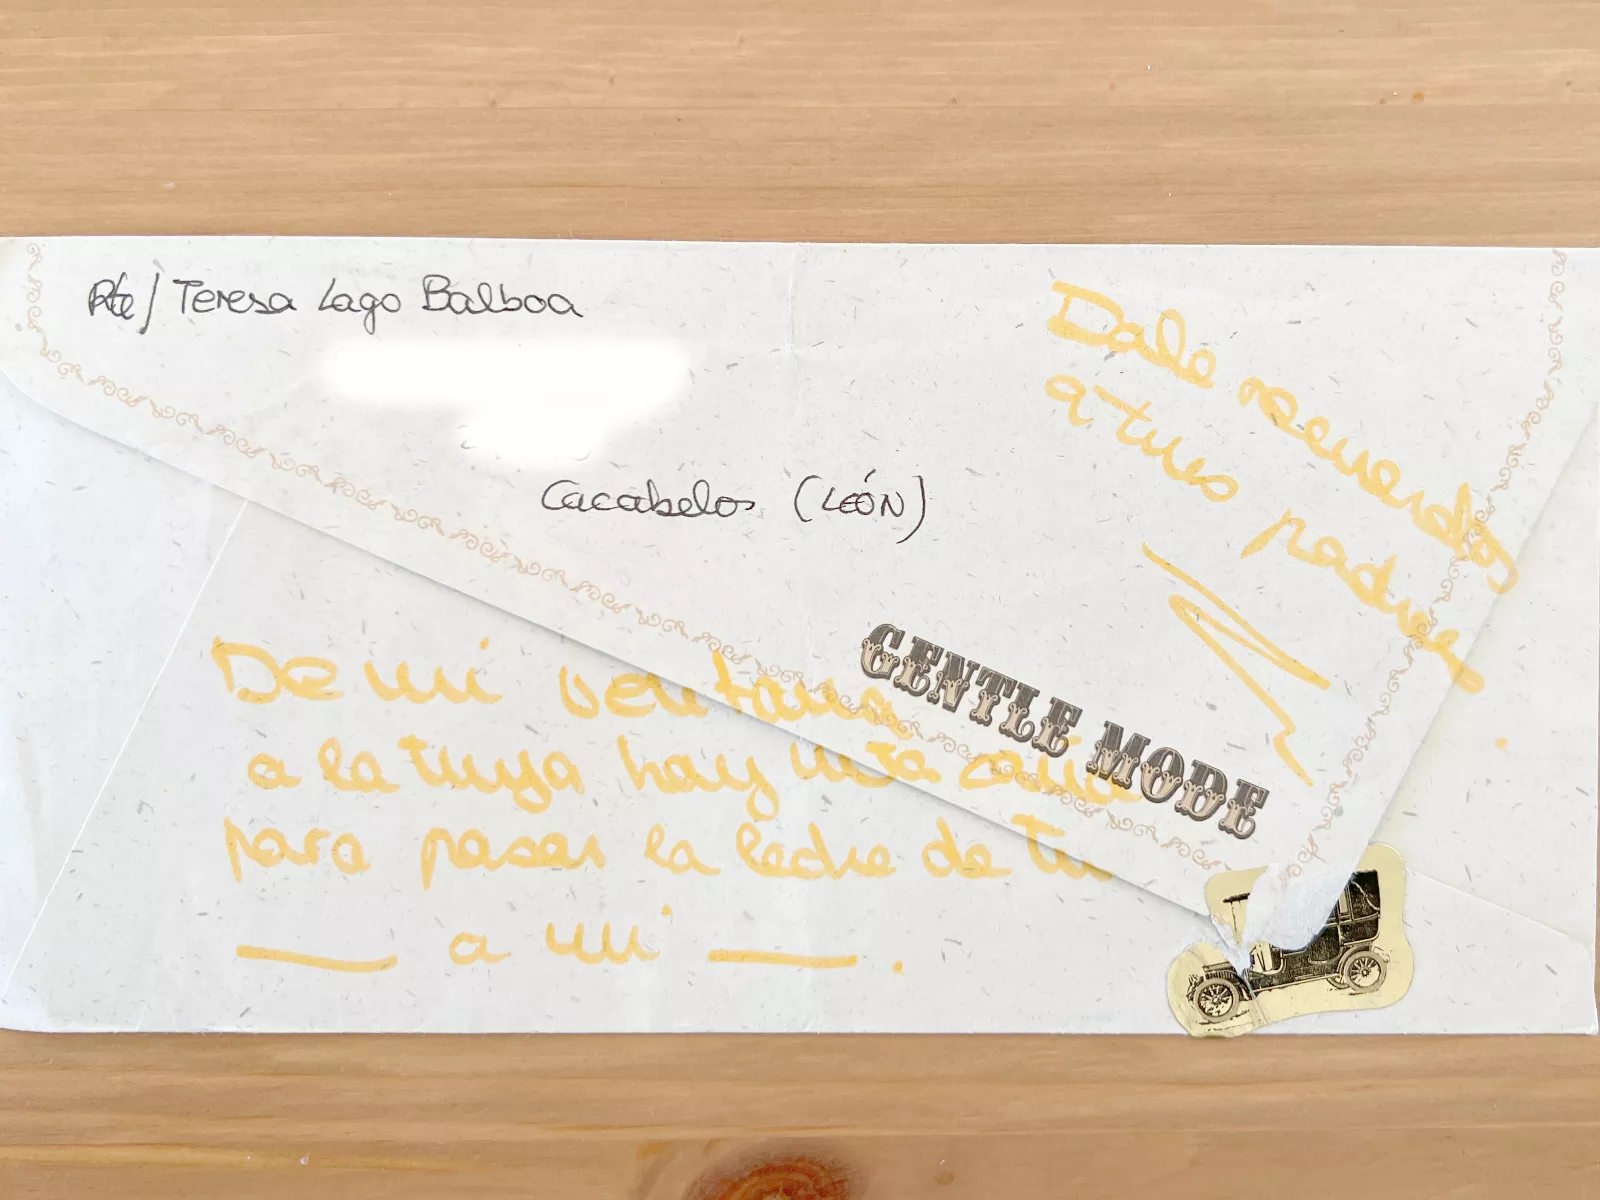 Rte/ Teresa Lago Balboa
Cacabelos (LEÓN)
Dale recuerdos
a tus padres
GENTLE MODE
De mi ventana
a la tuya hay una caña
para pasar la leche de tu
___ a mi ___.